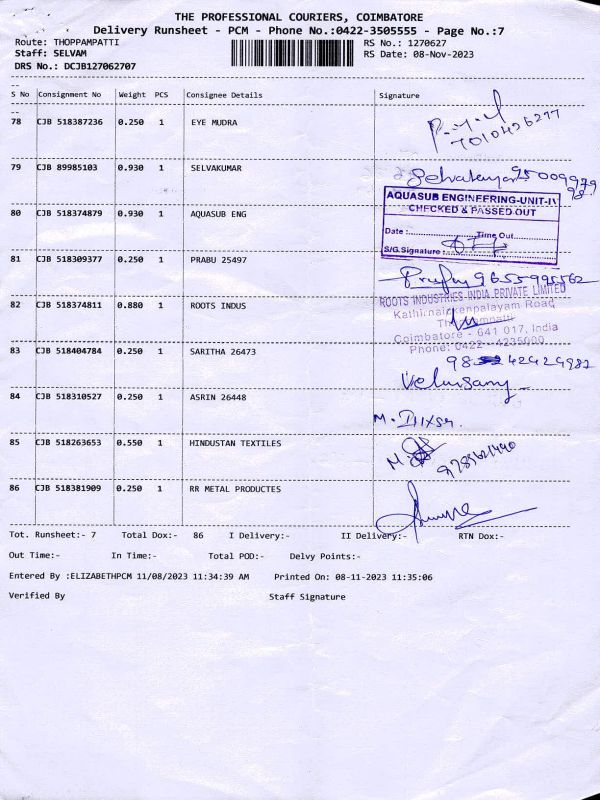 THE PROFESSIONAL COURIERS, COIMBATORE
Delivery Runsheet - PCM - Phone No.:0422-3505555 - Page No.:7
Route: THOPPAMPATTI RS No.: 1270627
Staff: SELVAM RS Date: 08-Nov-2023
DRS No.: DCJB127062707
S No Consignment No Weight PCS Consignee Details Signature
78 CJB 518387236 0.250 1 EYE MUDRA
7010426277
79 CJB 89985103 0.930 1 SELVAKUMAR
Selvakumar
AQUASUB ENGINEERING-UNIT-IV
CHECKED & PASSED OUT
80 CJB 518374879 0.930 1 AQUASUB ENG
Date : Time Out
S/G Signature :
81 CJB 518309377 0.250 1 PRABU 25497
9655995562
ROOTS INDUSTRIES INDIA PRIVATE LIMITED
82 CJB 518374811 0.880 1 ROOTS INDUS
Kathirnaickenpalayam Road
Thoppampatti
Coimbatore - 641 017, India
Phone: 0422 - 4235000
83 CJB 518404784 0.250 1 SARITHA 26473
Velusamy
84 CJB 518310527 0.250 1 ASRIN 26448
85 CJB 518263653 0.550 1 HINDUSTAN TEXTILES
86 CJB 518381909 0.250 1 RR METAL PRODUCTES
Tot. Runsheet:- 7 Total Dox:- 86 I Delivery:- II Delivery:- RTN Dox:-
Out Time:- In Time:- Total POD:- Delvy Points:-
Entered By :ELIZABETHPCM 11/08/2023 11:34:39 AM Printed On: 08-11-2023 11:35:06
Verified By Staff Signature